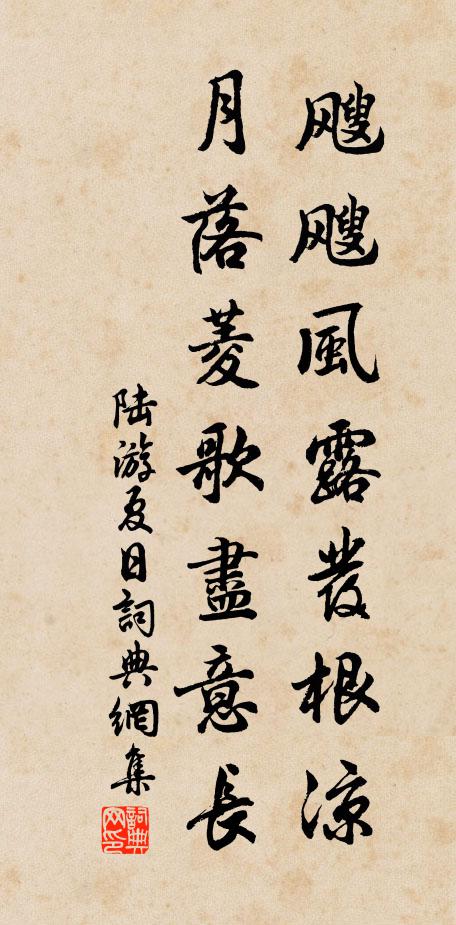 颼颼風露發根涼
月落菱歌盡意長
陸游夏日詞典網集
詞典網印